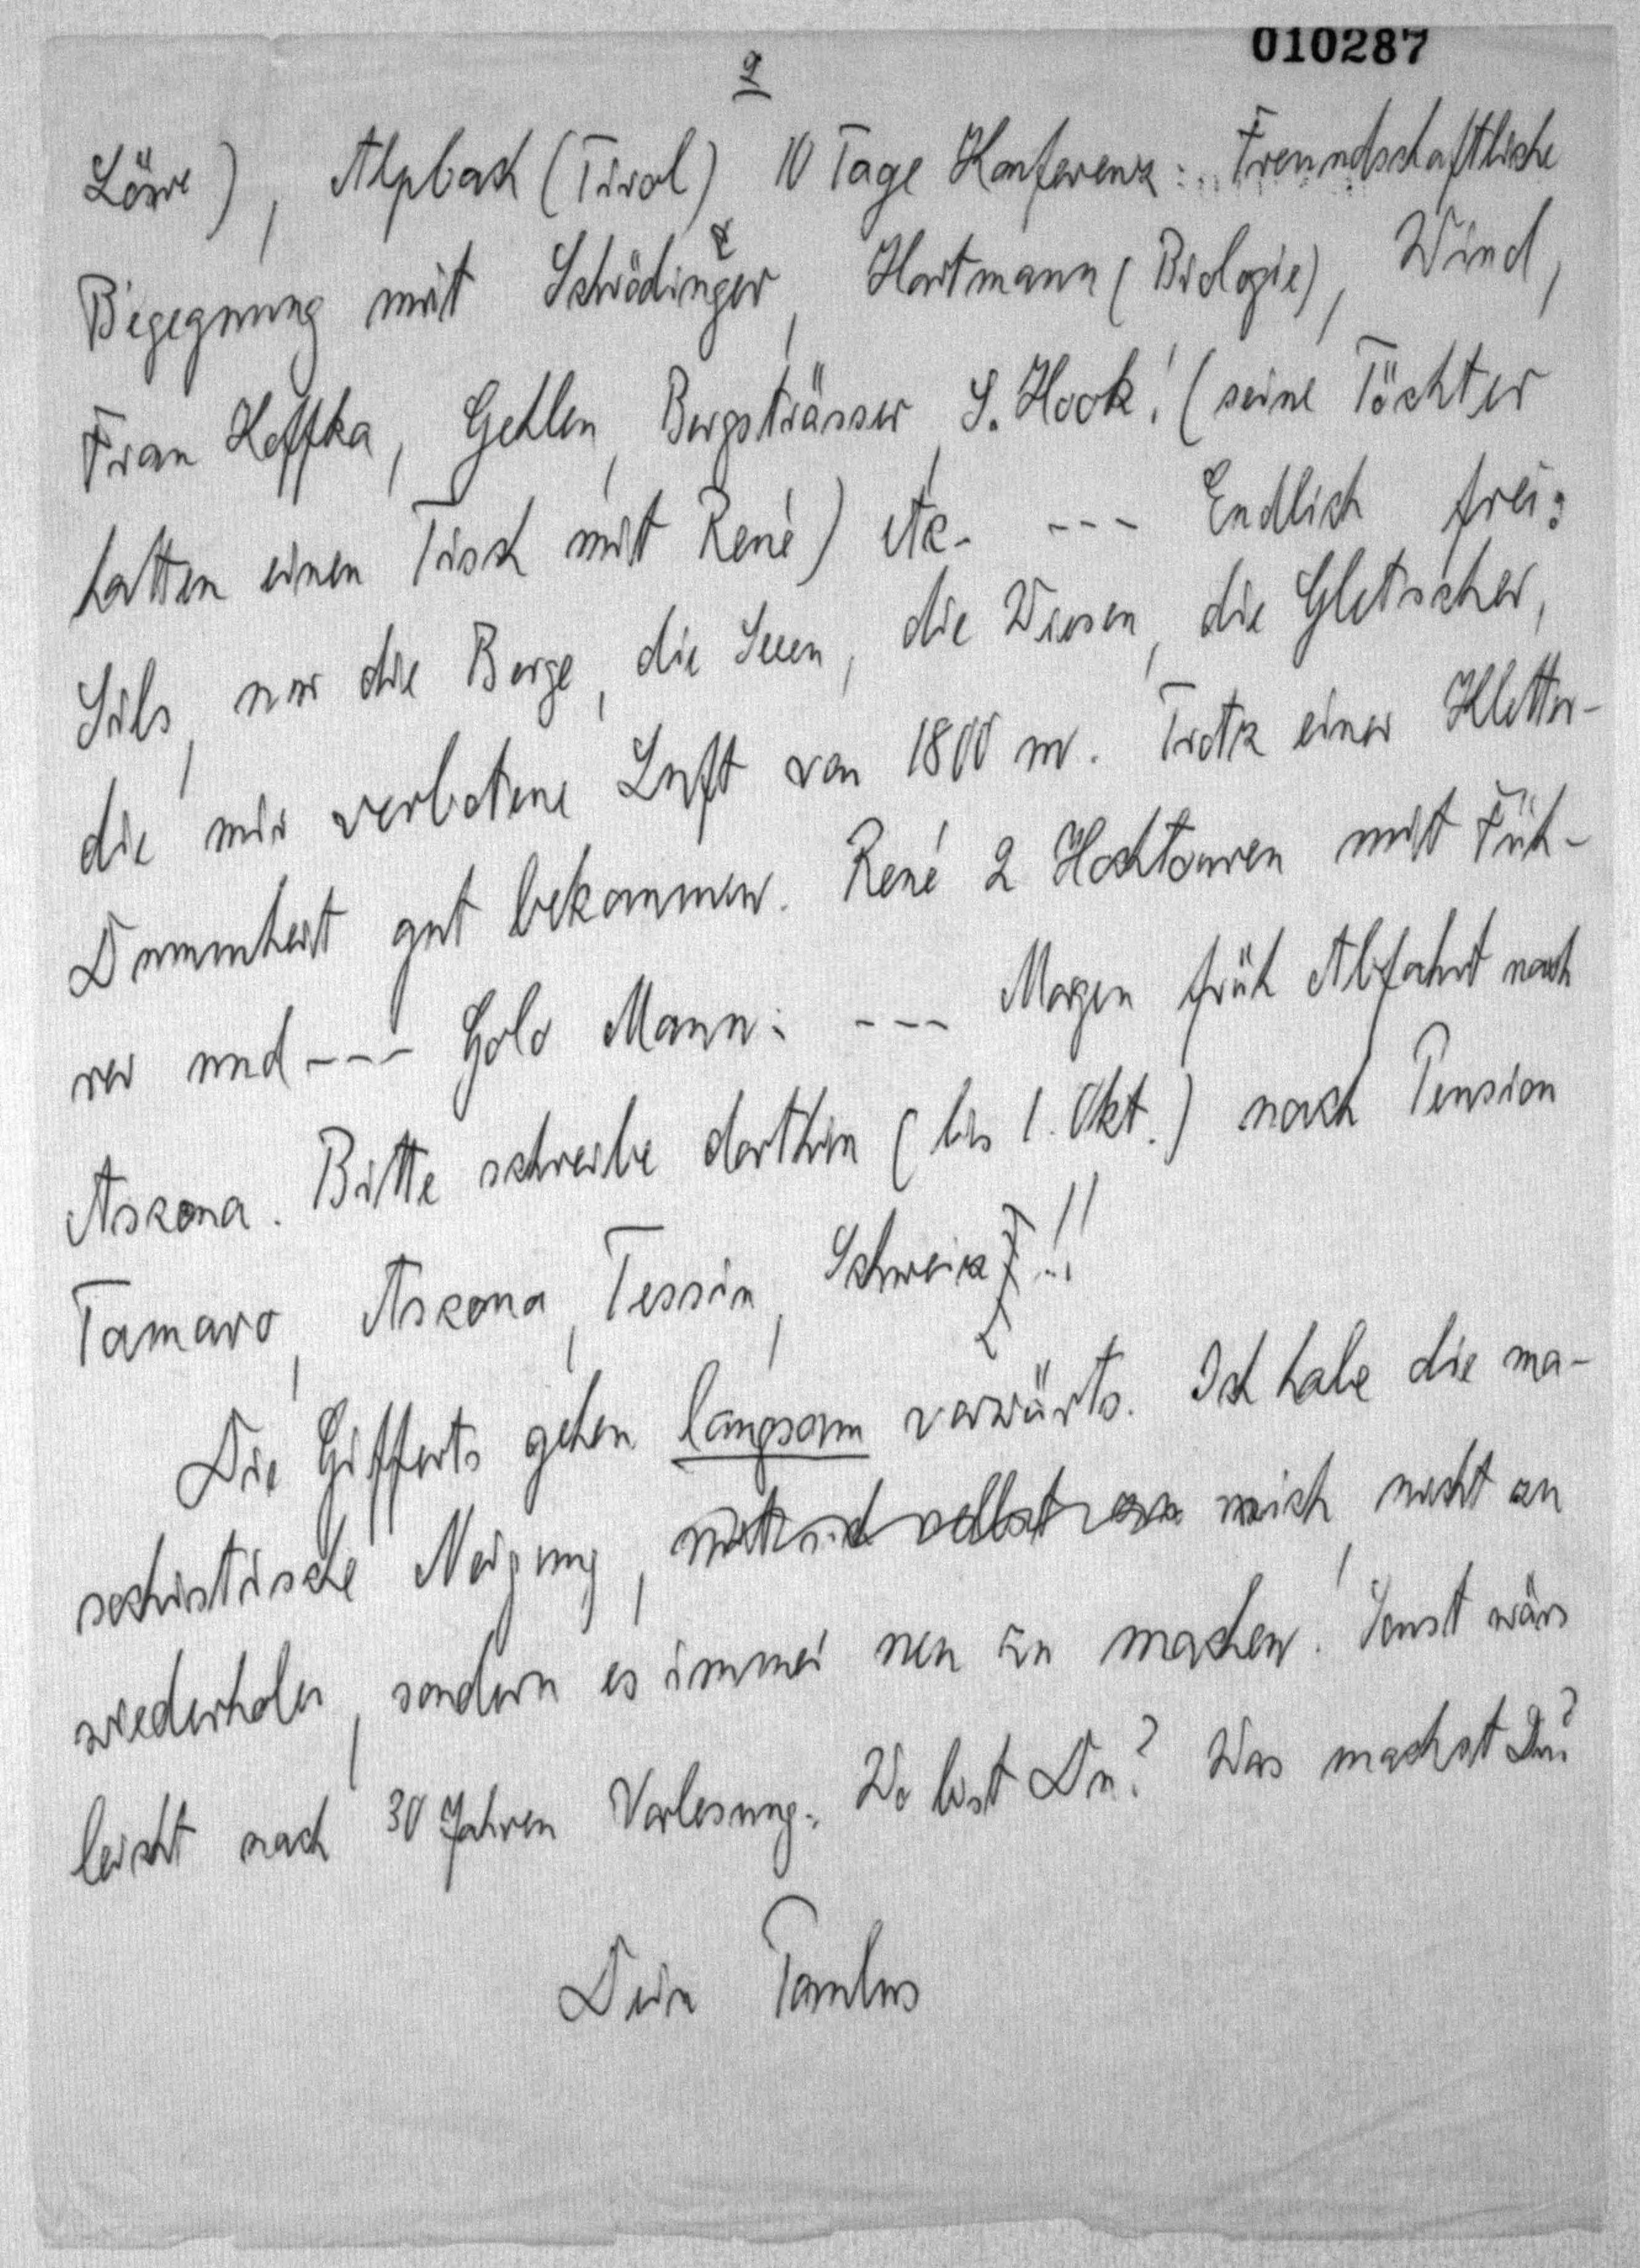 010287
2
Löwe), Alpbach (Tirol) 10 Tage Konferenz: Freundschaftliche
Begegnung mit Schrödinger, Hartmann (Biologie), Wind,
Frau Koffka, Gehlen, Bergsträsser, S. Hook! (seine Töchter
hatten einen Tisch mit René) etc. --- Endlich frei:
Sils, nur die Berge, die Seen, die Wiesen, die Gletscher,
die mir verbotene Luft von 1800 m. Trotz einer Kletter-
Dummheit gut bekommen. René 2 Hochtouren mit Füh-
rer und --- Golo Mann. --- Morgen früh Abfahrt nach
Askona. Bitte schreibe dorthin (bis 1. Okt.) nach Pension
Tamaro, Askona, Tessin, Schweiz!!
Die Gifferts gehen langsam vorwärts. Ich habe die ma-
sochistische Neigung, mich nicht zu
wiederholen, sondern es immer neu zu machen! Sonst wärs
leicht nach 30 Jahren Vorlesung. Wo bist Du? Was machst Du?
Dein Paulus